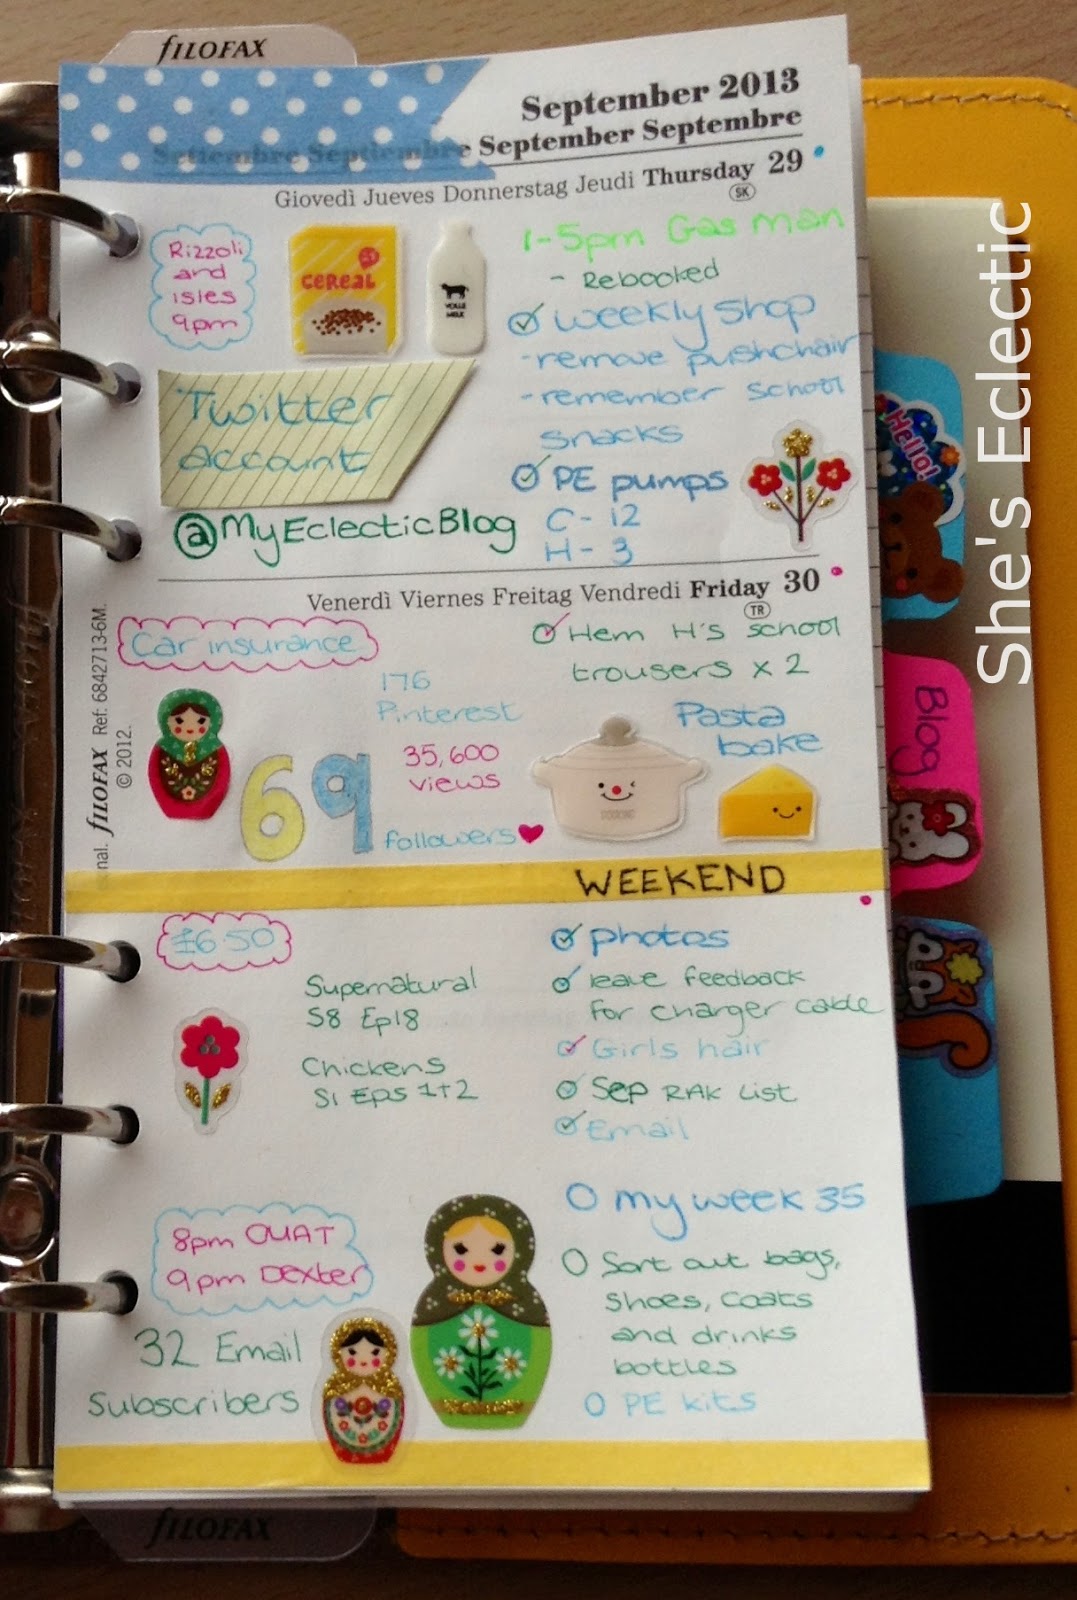 fILOFAX
September 2013
Settembre Septiembre September Septembre
Giovedì Jueves Donnerstag Jeudi Thursday 29
SK
Rizzoli
and
isles
9pm
CEREAL
MILK
1-5pm Gas man
- Rebooked
weekly shop
- remove pushchair
- remember school
snacks
PE pumps
C - 12
H - 3
Twitter
account
@MyEclecticBlog
Venerdì Viernes Freitag Vendredi Friday 30
TR
Car insurance
Hem H's school
trousers x 2
176
Pinterest
35,600
views
69
followers
Pasta
bake
COOKING
nal. fILOFAX Ref: 6842713-6M.
© 2012.
WEEKEND
£6.50
Supernatural
S8 Ep18
Chickens
S1 EPS 1+2
photos
leave feedback
for charger cable
Girls hair
Sep RAK List
Email
8pm OUAT
9pm Dexter
32 Email
Subscribers
O my week 35
O Sort out bags,
shoes, coats
and drinks
bottles
O PE kits
fILOFAX
Hello!
Blog
She's Eclectic